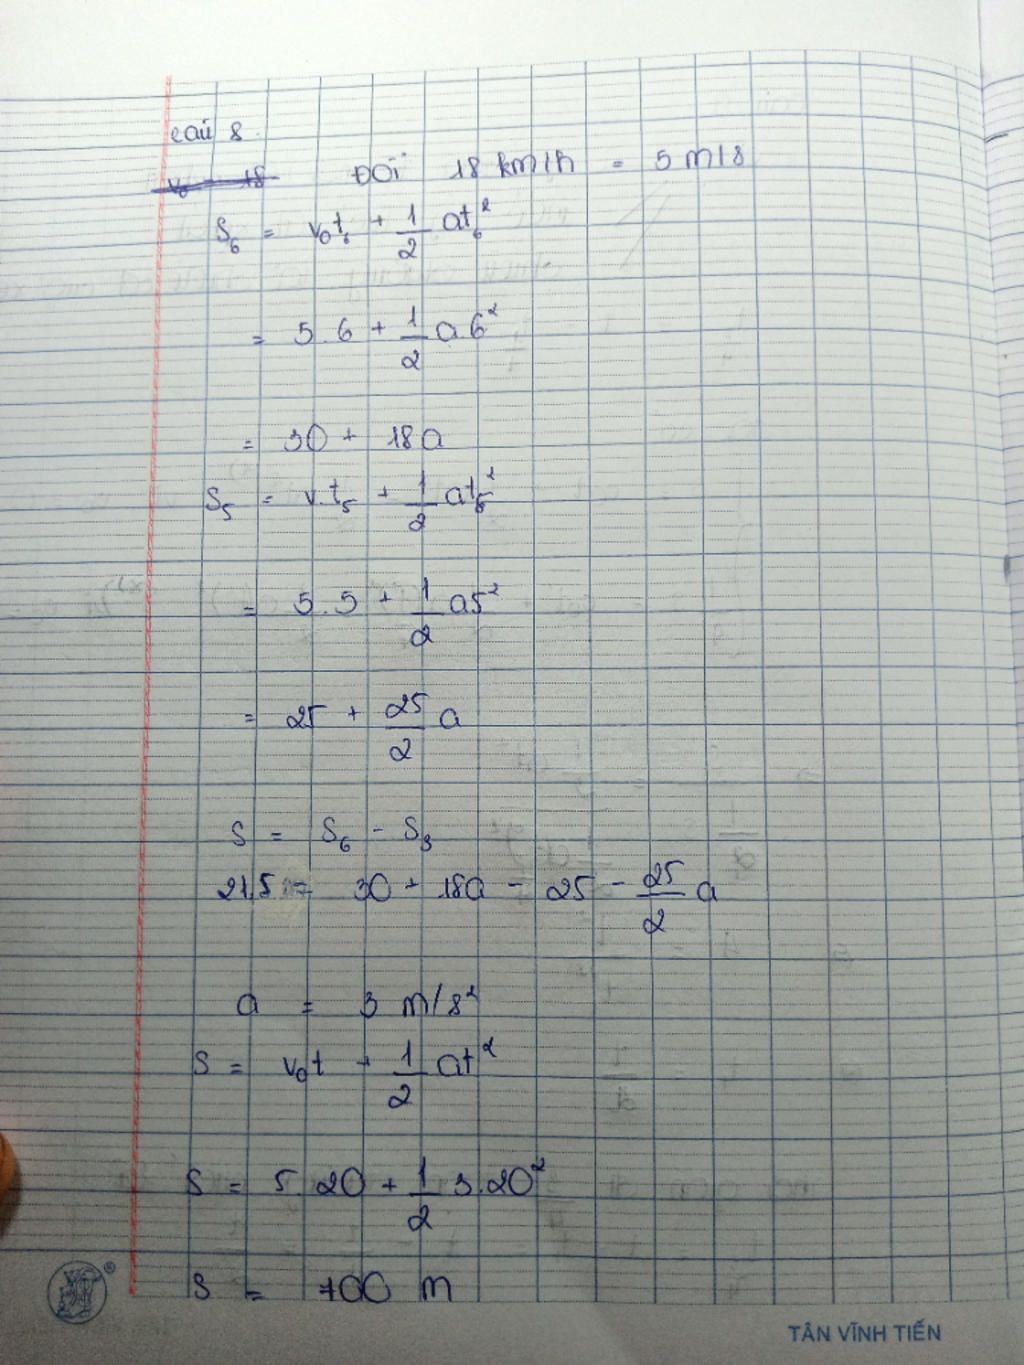 Câu 8.
v₀ = 18 ĐỔI 18 km/h = 5 m/s
S₆ = v₀t₆ + 1/2 at₆²
= 5.6 + 1/2 a.6²
= 30 + 18a
S₅ = v.t₅ + 1/2 at₅²
= 5.5 + 1/2 a5²
= 25 + 25/2 a
S = S₆ - S₅
21,5 = 30 + 18a - 25 - 25/2 a
a = 3 m/s²
S = v₀t + 1/2 at²
S = 5.20 + 1/2 3.20²
S = 700 m
TÂN VĨNH TIẾN